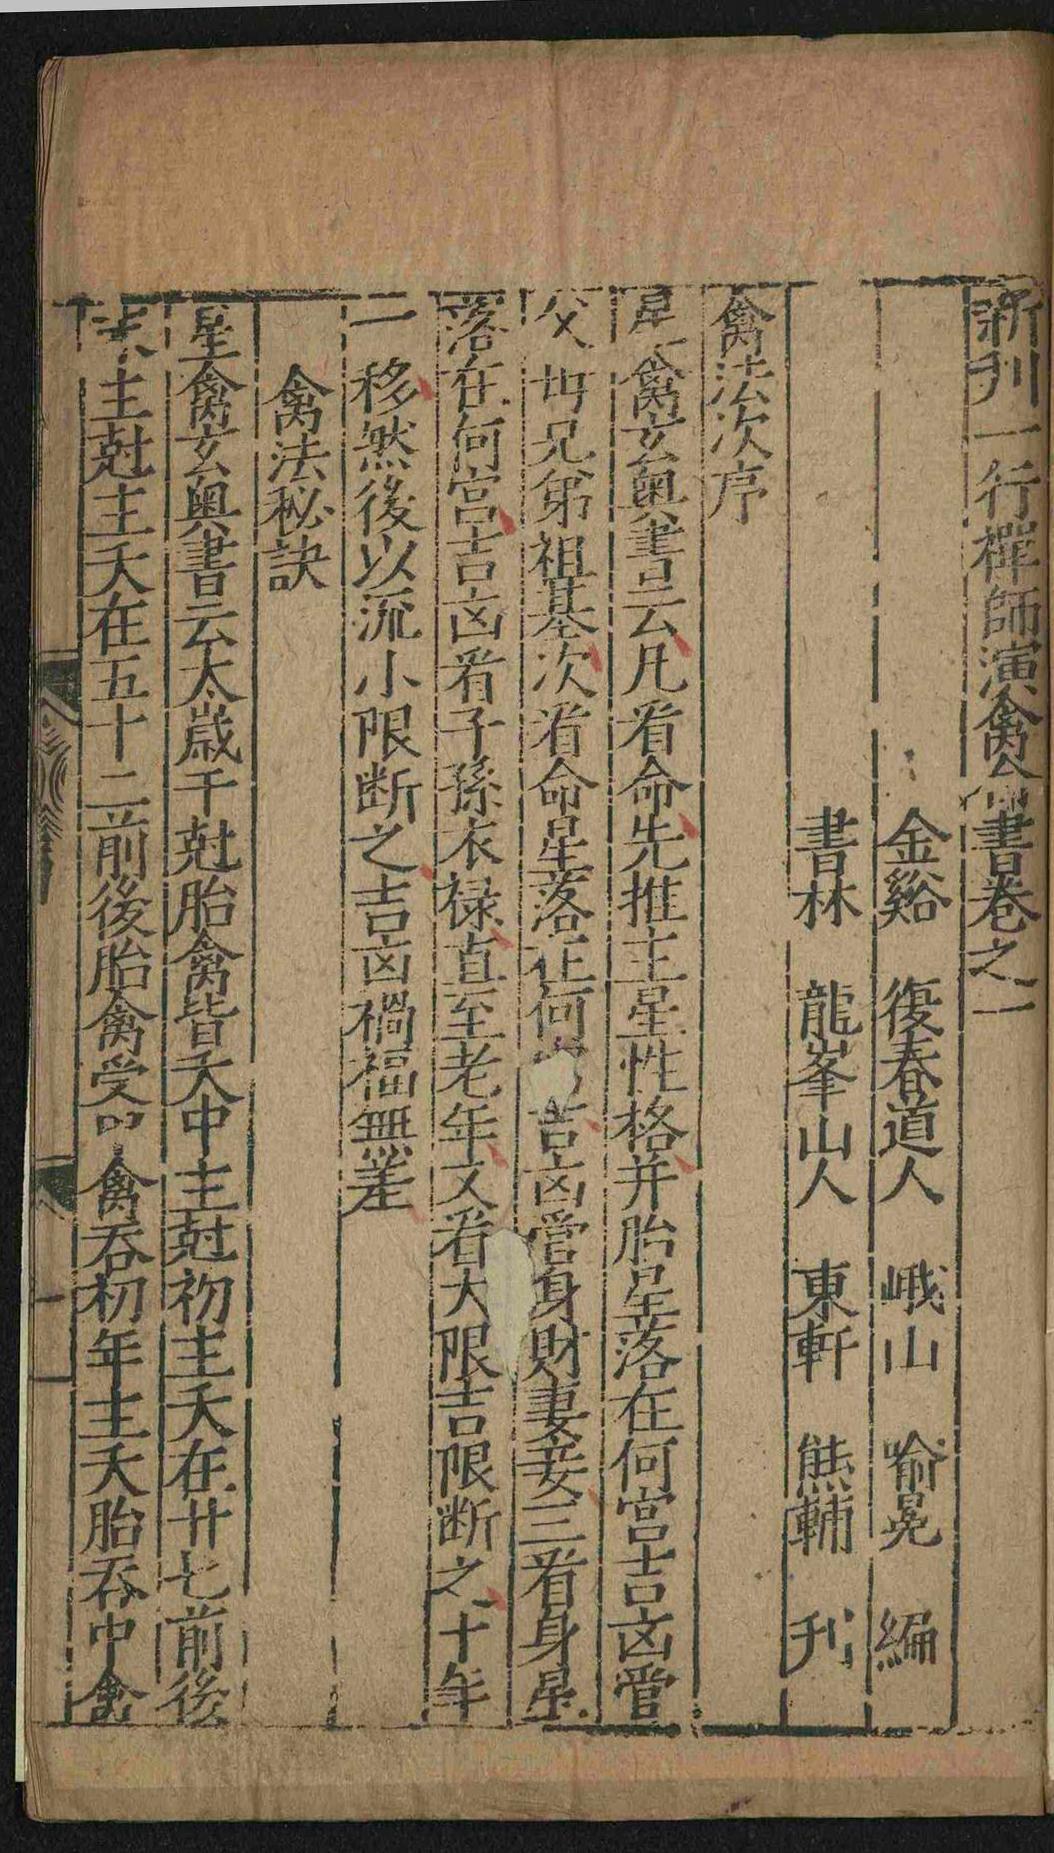 新刊一行禪師演禽命書卷之一
金谿　復春道人　峨山　喻冕　編
書林　龍峯山人　東軒　熊輔　刋
禽法次序
星禽玄奥書云凡看命先推主星性格并胎星落在何宮吉凶管
父母兄弟祖基次看命星落在何吉凶管身財妻妾三看身星
落在何宮吉凶看子孫衣禄直至老年又看大限吉限断之十年
一移然後以流小限断之吉凶禍福無差
禽法秘訣
星禽玄奥書云太歲干尅胎禽皆夭中主尅初主夭在廿七前後
末主尅主夭在五十二前後胎禽受禽吞初年主夭胎吞中禽